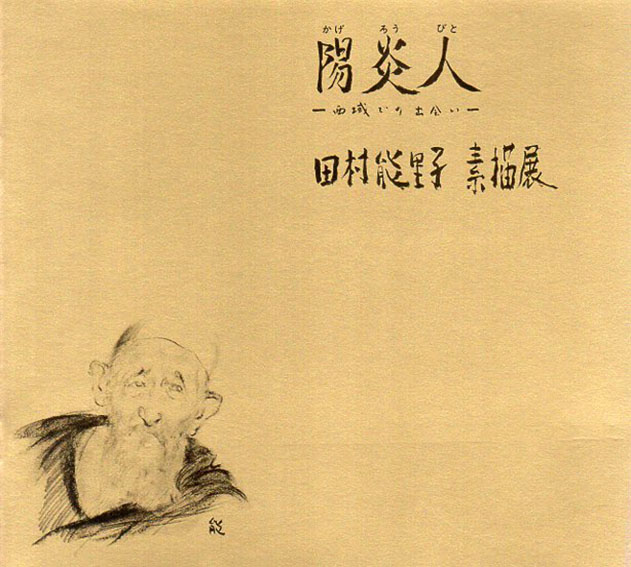 かげ ろう びと
陽炎人
ー西域での出会いー
田村能里子 素描展
能